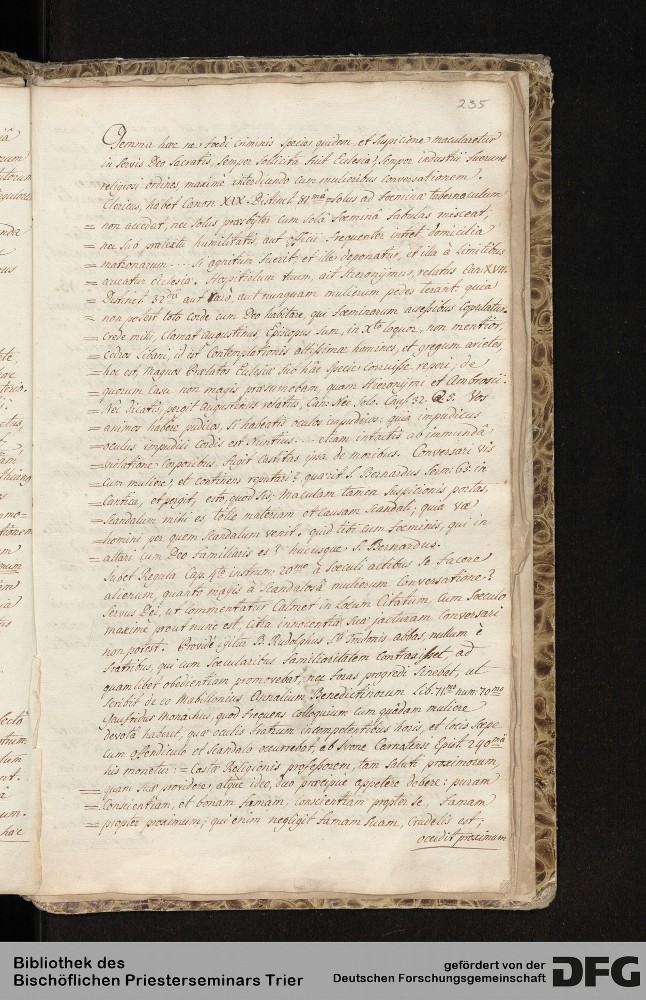 235
Gemma hæc ne fœdi criminis specie quidem, et suspicione macularetur
in servis Deo sacratis, semper sollicita fuit Ecclesia, semper industrii fuerunt
religiosi ordines, maximè interdicendo cum mulieribus conversationem.
Clericus, habet Canon XIX. Distinct. 81mâ = solus ad fœminæ tabernaculum
= non accedat, nec solus presbyter cum solâ fœminâ fabulas misceat,
= nec sub prætextu humilitatis, aut officii frequenter intret domicilia
= matronarum .... si agnitum fuerit, et ille deponatur, et illa à limitibus
= arceatur Ecclesiæ. Hospitiolum tuum, ait Hieronymus, relatus Can: XVII.
= Distinct. 32dæ aut rarò, aut nunquam mulierum pedes terant: quia
= non potest toto corde cum Deo habitare, qui fœminarum accessibus copulatur.
= Crede mihi, clamat Augustinus, Episcopus sum, in Xto loquor, non mentior,
= Cedros Libani, id est contemplationis altissimæ homines, et gregum arietes,
= hoc est, magnos Prælatos Ecclesiæ sub hâc specie corruisse reperi, de
= quorum casu non magis præsumebam, quam Hieronymi et Ambrosii:
= Nec dicatis, pergit Augustinus relatus, Can: Nec solo. Caus. 32. Q 5. Vos
= animos habere pudicos, si habeatis oculos impudicos: quia impudicus
= oculus impudici cordis est nuntius .... etiam intactis ab immundâ
= violatione corporibus, fugit castitas ipsa de moribus. Conversari vis
= cum muliere, et continens reputari? quærit S. Bernardus Serm: 65: in
= Cantica, et pergit, esto, quod sis, maculam tamen suspicionis portas,
= scandalum mihi es, tolle materiam et causam scandali; quia væ
= homini per quem scandalum venit. quid tibi cum fœminis, qui in
= altari cum Deo familiaris es? hucusque S. Bernardus.
Jubet Regula Cap. 4to instrum: 20mo à sæculi actibus se facere
alienum, quanto magis à scandalosâ mulierum conversatione?
Servus Dei, ut commentatur Calmet in locum citatum, cum sæculo
maximè prout nunc est, citra innocentiæ suæ jacturam conversari
non potest. Providè igitur B. Rudolphus Sti Trudonis abbas, nullum è
fratribus, qui cum sæcularibus familiaritatem contraxisset, ad
quamlibet obedientiam promovebat, nec foras progredi sinebat, ut
scribit de eo Mabillonius Annalium Benedictinorum Lib: 71mo num: 70mo
Gaufridus Monachus, quod frequens colloquium cum quâdam muliere
devotâ haberet, quæ oculis fratrum incompetentibus horis, et locis sæpe
cum offendiculo et scandalo occurrebat, ab Ivone Carnatensi Epist: 290mâ
his monetur: = Castæ Religionis professorem, tam saluti proximorum,
= quam suæ providere, atque ideo, duo præcipuè appetere debere: puram
= conscientiam, et bonam famam, conscientiam propter se, famam
= propter proximum; qui enim negligit famam suam, crudelis est;
occidit proximum
Bibliothek des
Bischöflichen Priesterseminars Trier
gefördert von der
Deutschen Forschungsgemeinschaft
DFG